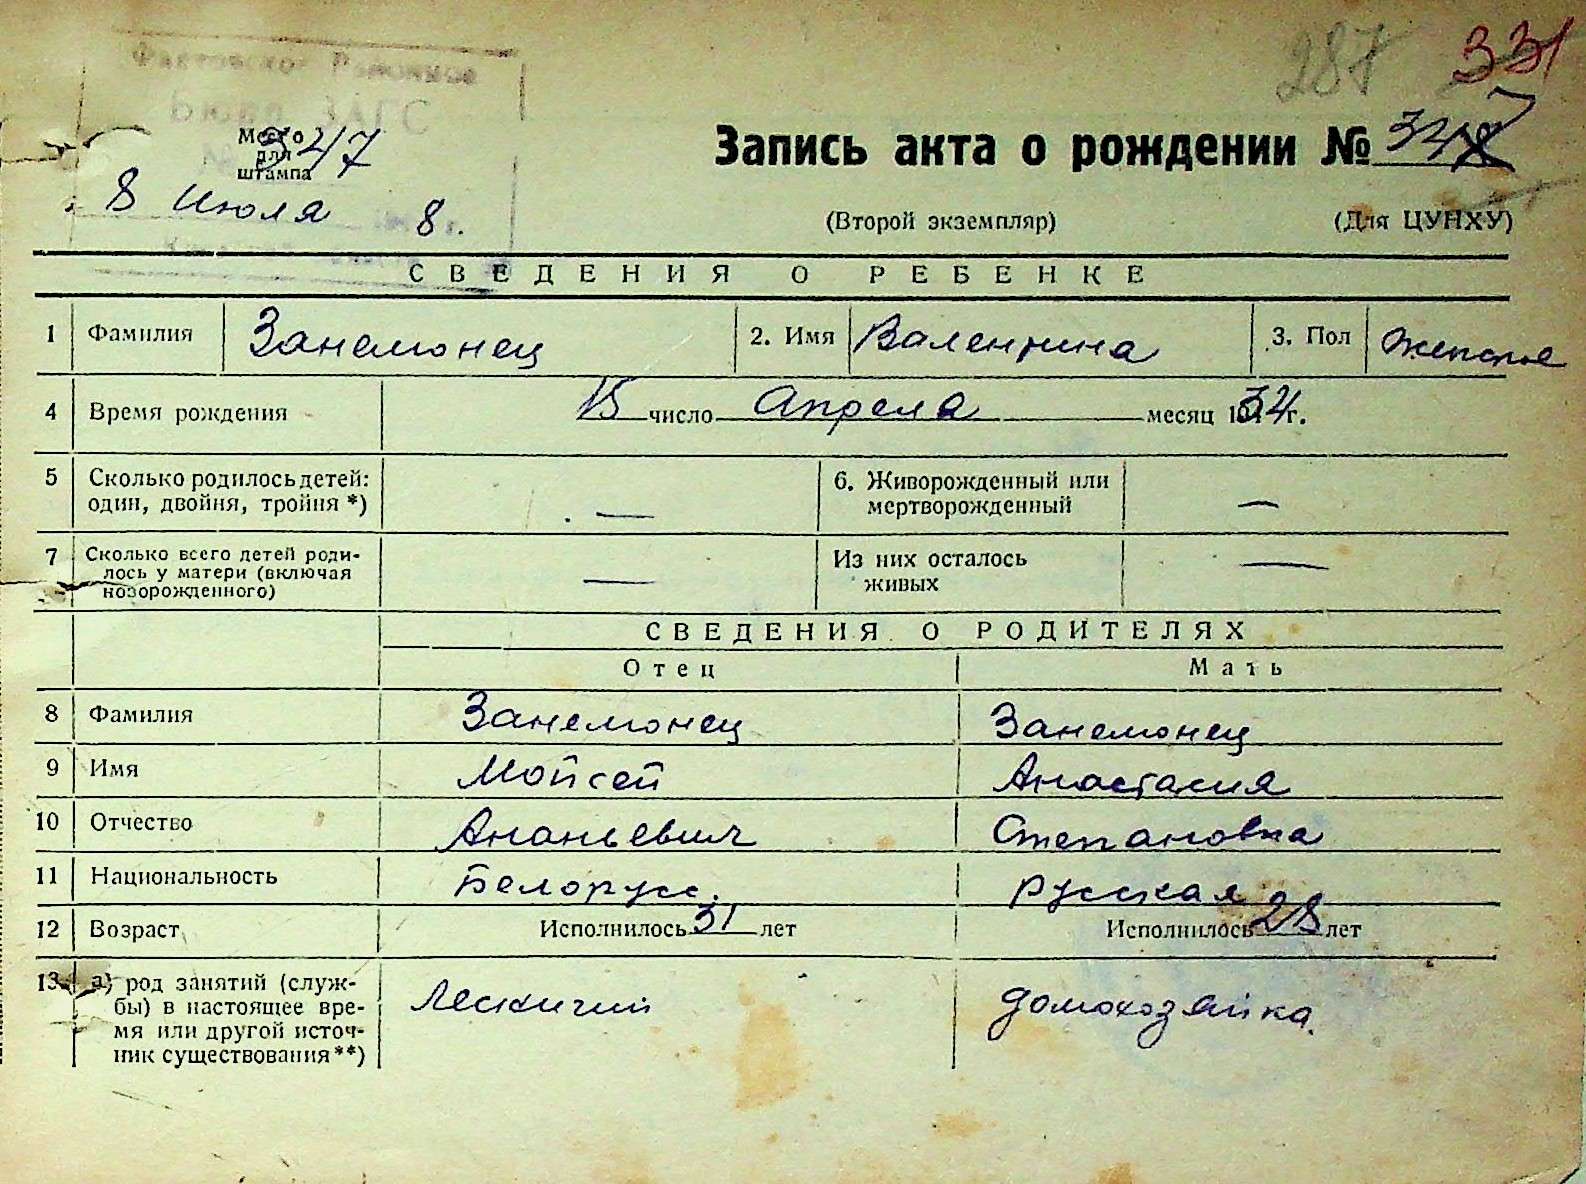 287 331
Районное
Бюро ЗАГС
Место
для
штампа
347
Запись акта о рождении № 347
8 Июля 8.
(Второй экземпляр) (Для ЦУНХУ)
СВЕДЕНИЯ О РЕБЕНКЕ
1 Фамилия Занемонец 2. Имя Валентина 3. Пол Женское
4 Время рождения 15 число Апреля месяц 1934 г.
5 Сколько родилось детей: — 6. Живорожденный или —
один, двойня, тройня *) мертворожденный
7 Сколько всего детей роди- — Из них осталось —
лось у матери (включая живых
новорожденного)
СВЕДЕНИЯ О РОДИТЕЛЯХ
Отец Мать
8 Фамилия Занемонец Занемонец
9 Имя Мойсей Анастасия
10 Отчество Ананьевич Степановна
11 Национальность Белорусс. русская
12 Возраст Исполнилось 31 лет Исполнилось 28 лет
13. а) род занятий (служ- Лескичий домохозяйка.
бы) в настоящее вре-
мя или другой источ-
ник существования**)